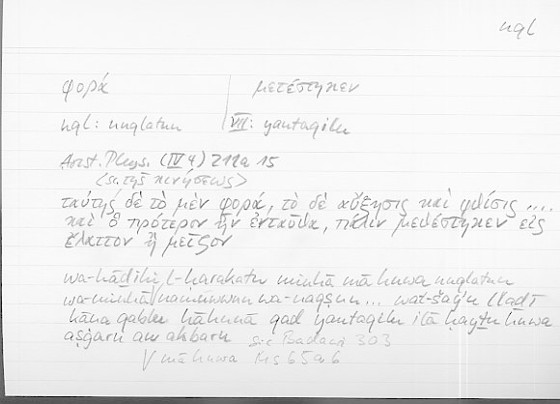 nql
φορά | μετέστηκεν
nql: nuqlatun | VIII: yantaqilu
Arist. Phys. (IV 4) 211a 15
(sc. τῆς κινήσεως)
ταύτης δὲ τὸ μὲν φορά, τὸ δὲ αὔξησις καὶ φθίσις ....
καὶ ὃ πρότερον ἦν ἐνταῦθα, πάλιν μεθέστηκεν εἰς
ἔλαττον ἢ μεῖζον
wa-hādihī l-ḥarakatu minhā mā huwa nuqlatun
wa-minhā numuwwun wa-naqṣun... wal-šayʾu lladī
kāna qablu hāhunā qad yantaqilu ilā ḥayṯu huwa
aṣġaru au akbaru sic Badawi 303
V mā huwa Ms 65a6